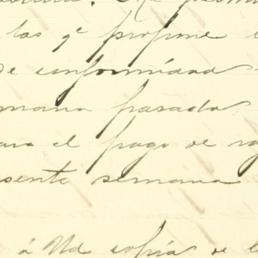 las qe propone
de conformidad
mana pasada
para el pago de
sente semana
á Ud copia de l